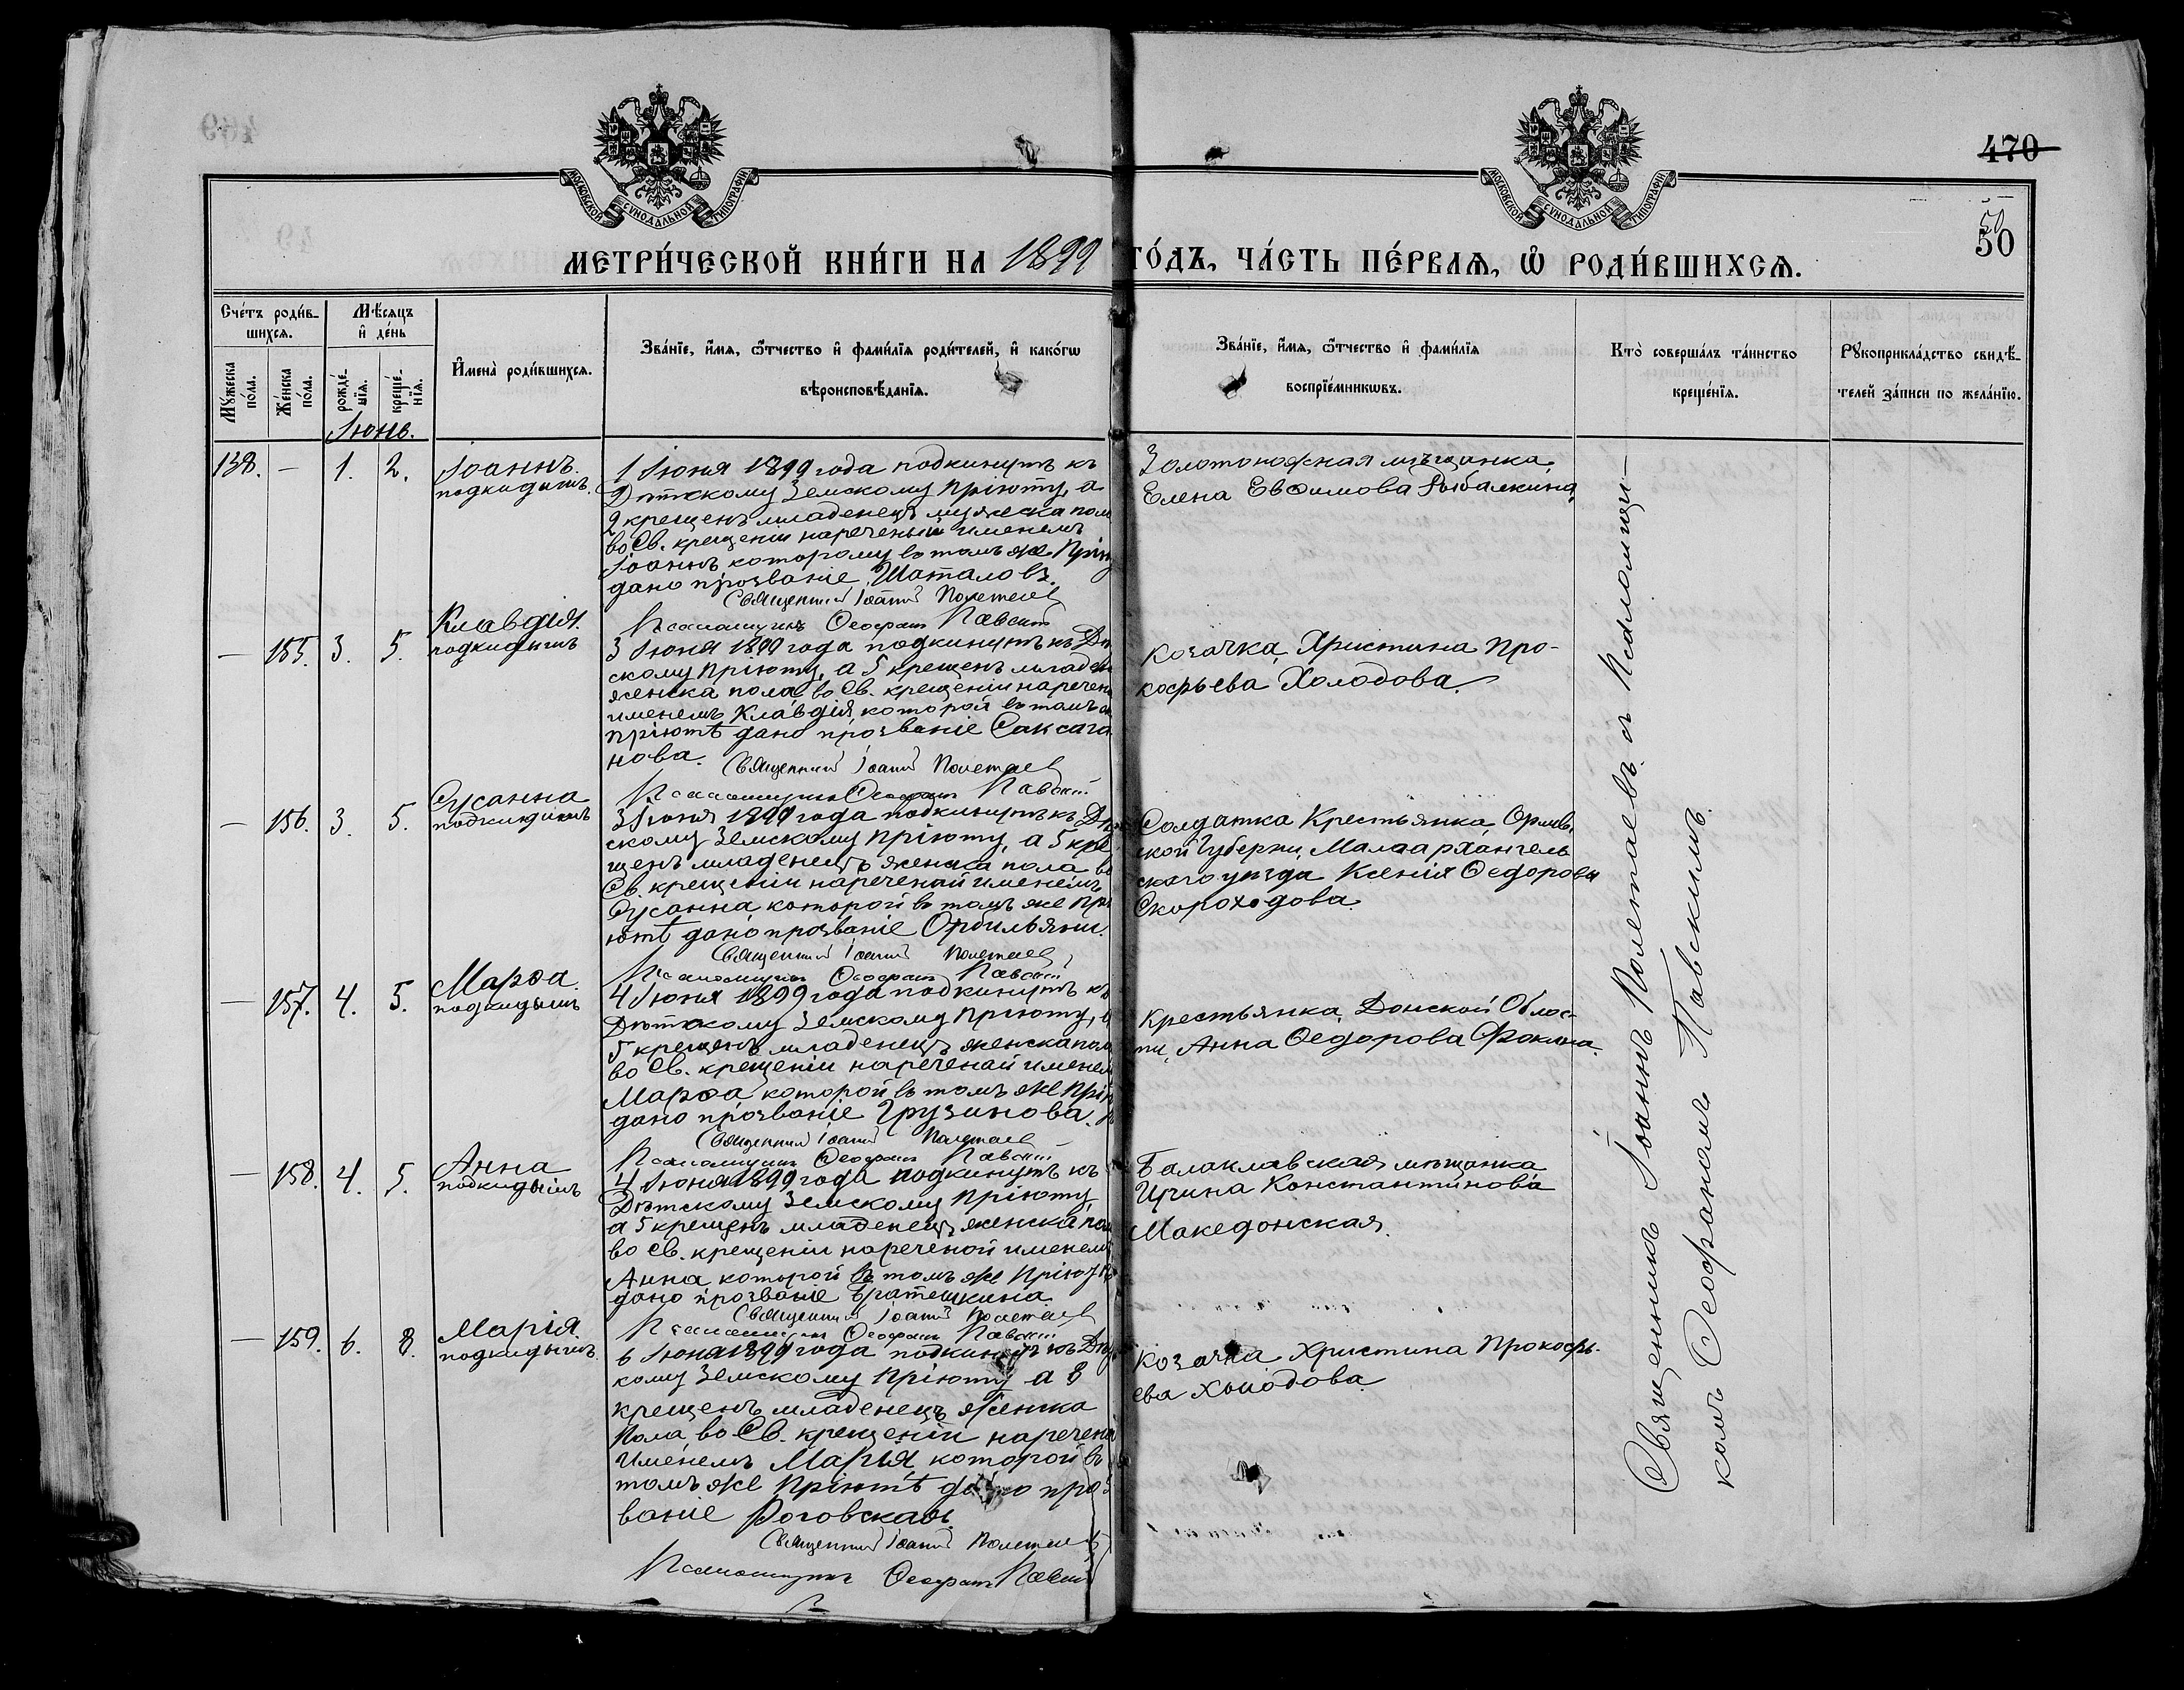 470
50
50
МОСКОВСКОЙ СѴНОДАЛЬНОЙ ТИПОГРАФІИ
МОСКОВСКОЙ СѴНОДАЛЬНОЙ ТИПОГРАФІИ
МЕТРИ́ЧЕСКОЙ КНИ́ГИ НА 1899 ГО́ДЪ, ЧА́СТЬ ПЕ́РВАѦ, Ѡ҆ РОДИ́ВШИХСѦ.
Сче́тъ роди́в-
шихсѧ.
Мꙋ́жеска по́ла.
Же́нска по́ла.
Мѣ́сѧцъ
и҆ де́нь
рожде́-
нїѧ.
креще́-
нїѧ.
Іюнь.
И҆мена̀ роди́вшихсѧ.
Зва́нїе, и҆́мѧ, ѻ҆́тчество и҆ фами́лїѧ роди́телей, и҆ како́гѡ
вѣроисповѣ́данїѧ.
Зва́нїе, и҆́мѧ, ѻ҆́тчество и҆ фами́лїѧ
воспрїе́мникѡвъ.
Кто̀ соверша́лъ та́инство
креще́нїѧ.
Рꙋкоприкла́дство свидѣ́-
телей за́писи по жела́нїю.
138. — 1. 2.
Іоаннъ.
подкидышъ.
1 Іюня 1899 года подкинутъ къ
Дѣтскому Земскому Пріюту, а
2 крещенъ младенецъ мужеска пола
во Св. крещеніи нареченый именемъ
Іоаннъ которому въ томъ же Прію
дано прозваніе Шаталовъ.
Священникъ Іоаннъ Полетаев
Псаломщикъ Ѳеофанъ Павскій
Золотоножная мѣщанка
Елена Евѳимова Рыбалкина
— 155. 3. 5.
Клавдія.
подкидышъ
3 Іюня 1899 года подкинутъ къ Дѣт
скому Пріюту, а 5 крещенъ младен
женска пола во Св. крещеніи наречен
именемъ Клавдія, которой въ томъ ж
пріютѣ дано прозваніе Саксага
нова.
Священникъ Іоаннъ Полетаев
Псаломщикъ Ѳеофанъ Павскій
козачка Христина Про-
кофьева Холодова.
— 156. 3. 5.
Сусанна
подкидышъ
3 Іюня 1899 года подкинутъ къ Дѣт
скому Земскому Пріюту, а 5 кре
щенъ младенецъ женска пола во
Св. крещеніи нареченай именемъ
Сусанна которой въ томъ же Прі
ютѣ дано прозваніе Орбильяни.
Священникъ Іоаннъ Полетаев
Псаломщикъ Ѳеофанъ Павскій
Солдатка Крестьянка Орлов
ской Губерни, Малоархангель
ского уѣзда Ксенія Ѳедорова
Скороходова.
— 157. 4. 5.
Марѳа.
подкидышъ
4 Іюня 1899 года подкинутъ къ
Дѣтскому Земскому Пріюту, а
5 крещенъ младенецъ женска пола
во Св. крещеніи нареченай именем
Марѳа которой въ томъ же Прі
дано прозваніе Грузинова.
Священникъ Іоаннъ Полетаев
Псаломщикъ Ѳеофанъ Павскій
Крестьянка Донской Облас-
ти, Анна Ѳедорова Фокина.
— 158. 4. 5.
Анна
подкидышъ
4 Іюня 1899 года подкинутъ къ
Дѣтскому Земскому Пріюту
а 5 крещенъ младенецъ женска пол
во Св. крещеніи нареченой именемъ
Анна которой въ томъ же Пріютѣ
дано прозваніе Братешкина
Священникъ Іоаннъ Полетаев
Псаломщикъ Ѳеофанъ Павскій
Балаклавская мѣщанка
Ирина Константинова
Македонская.
— 159. 6. 8.
Марія.
подкидышъ.
6 Іюня 1899 года подкинутъ къ Дѣт
кому Земскому Пріюту а 8
крещенъ младенецъ женска
пола, во Св. крещеніи наречена
именемъ Марія которой въ
томъ же Пріютѣ дано проз
ваніе Роговская
Священникъ Іоаннъ Полетаев
Псаломщикъ Ѳеофанъ Павскій
козачка Христина Прокофь-
ева Холодова.
Священникъ Іоаннъ Полетаевъ съ Псаломщи-
комъ Ѳеофаномъ Павскимъ.